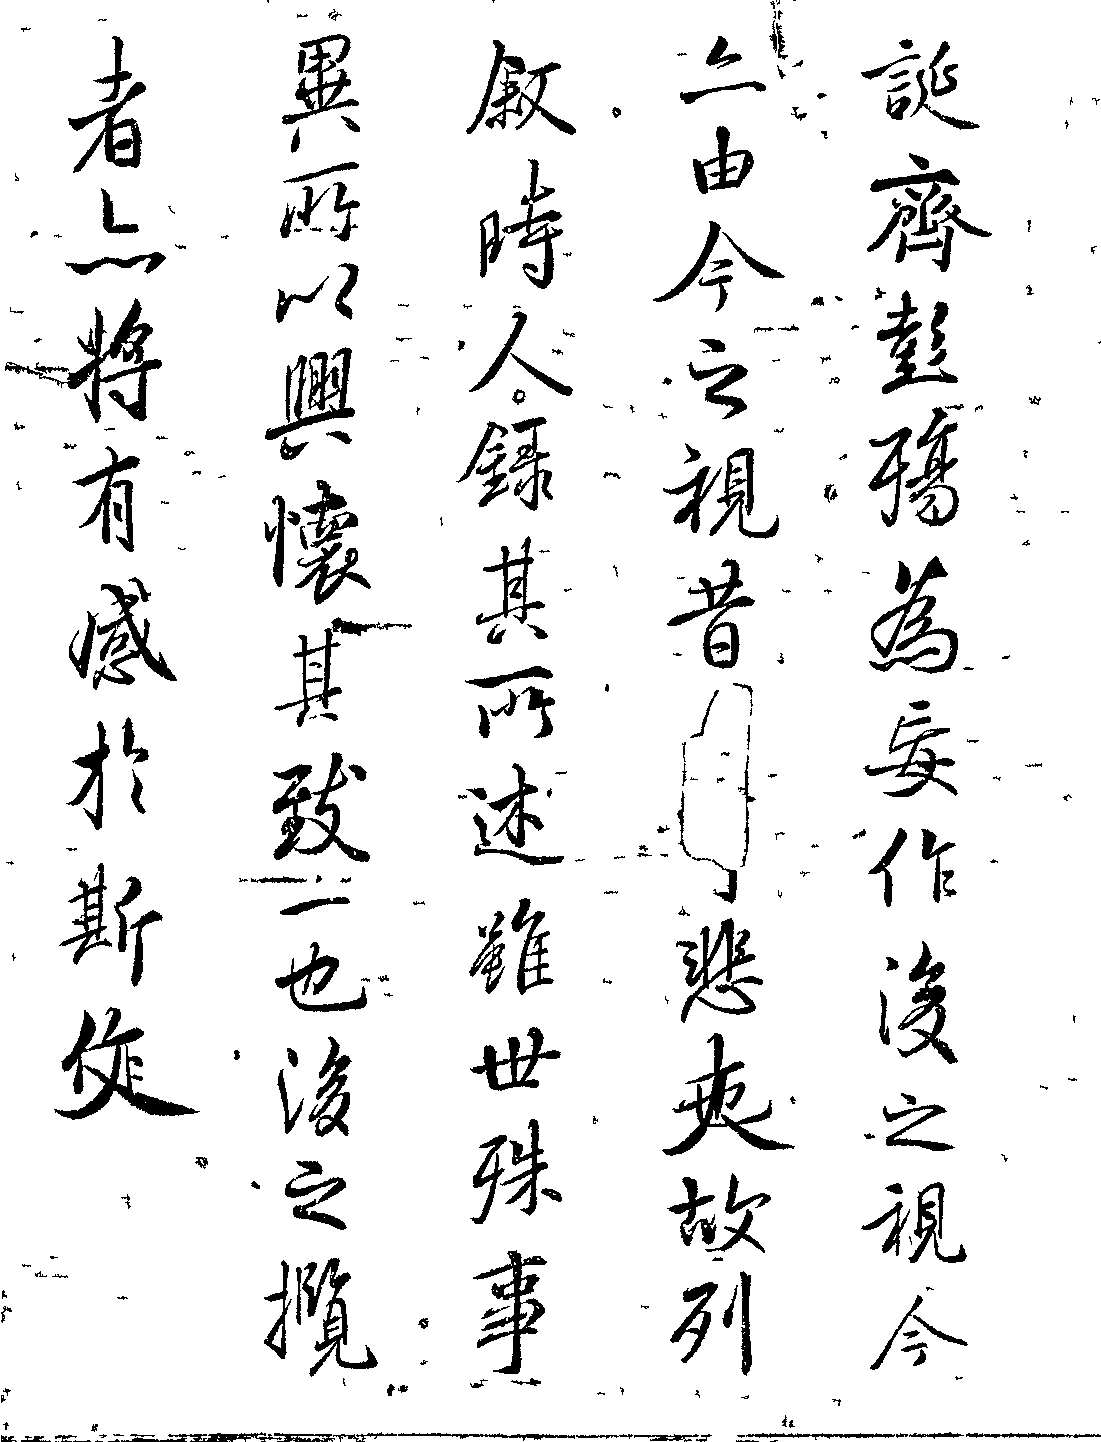 誕齊彭殤為妄作後之視今
亦由今之視昔悲夫故列
敘時人録其所述雖世殊事
異所以興懷其致一也後之攬
者亦將有感於斯作